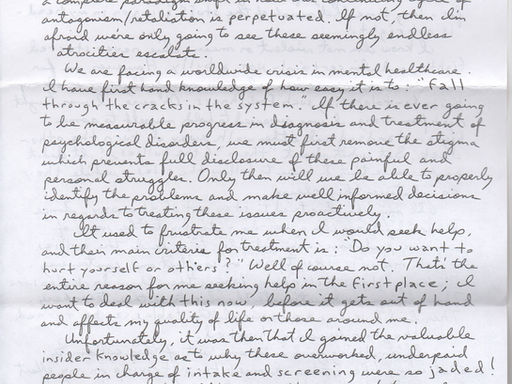 a complete paradigm shift in how our continuing cycle of
antagonism/retaliation is perpetuated. If not, then I'm
afraid we're only going to see these seemingly endless
atrocities escalate.
We are facing a worldwide crisis in mental healthcare.
I have first hand knowledge of how easy it is to: "Fall
through the cracks in the system." If there is ever going
to be measurable progress in diagnosis and treatment of
psychological disorders, we must first remove the stigma
which prevents full disclosure of these painful and
personal struggles. Only then will we be able to properly
identify the problems and make well informed decisions
in regards to treating these issues proactively.
It used to frustrate me when I would seek help,
and their main criteria for treatment is: "Do you want to
hurt yourself or others?" Well of course not. That's the
entire reason for me seeking help in the first place; I
want to deal with this now, before it gets out of hand
and affects my quality of life or those around me.
Unfortunately, it was then that I gained the valuable
insider knowledge as to why these overworked, underpaid
people in charge of intake and screening were so jaded!